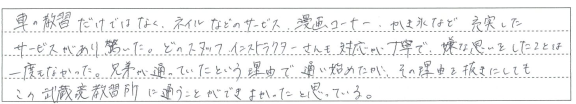 車の教習だけではなく、ネイルなどのサービス、漫画コーナー、かき氷など充実した
サービスがあり驚いた。どのスタッフ、インストラクターさんも対応が丁寧で、嫌な思いをしたことは
一度もなかった。兄弟が通っていたという理由で通い始めたが、その理由を抜きにしても
この武蔵境教習所に通うことができてよかったと思っている。